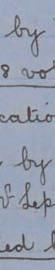 by
8 vol
catio
by
Sep
ed